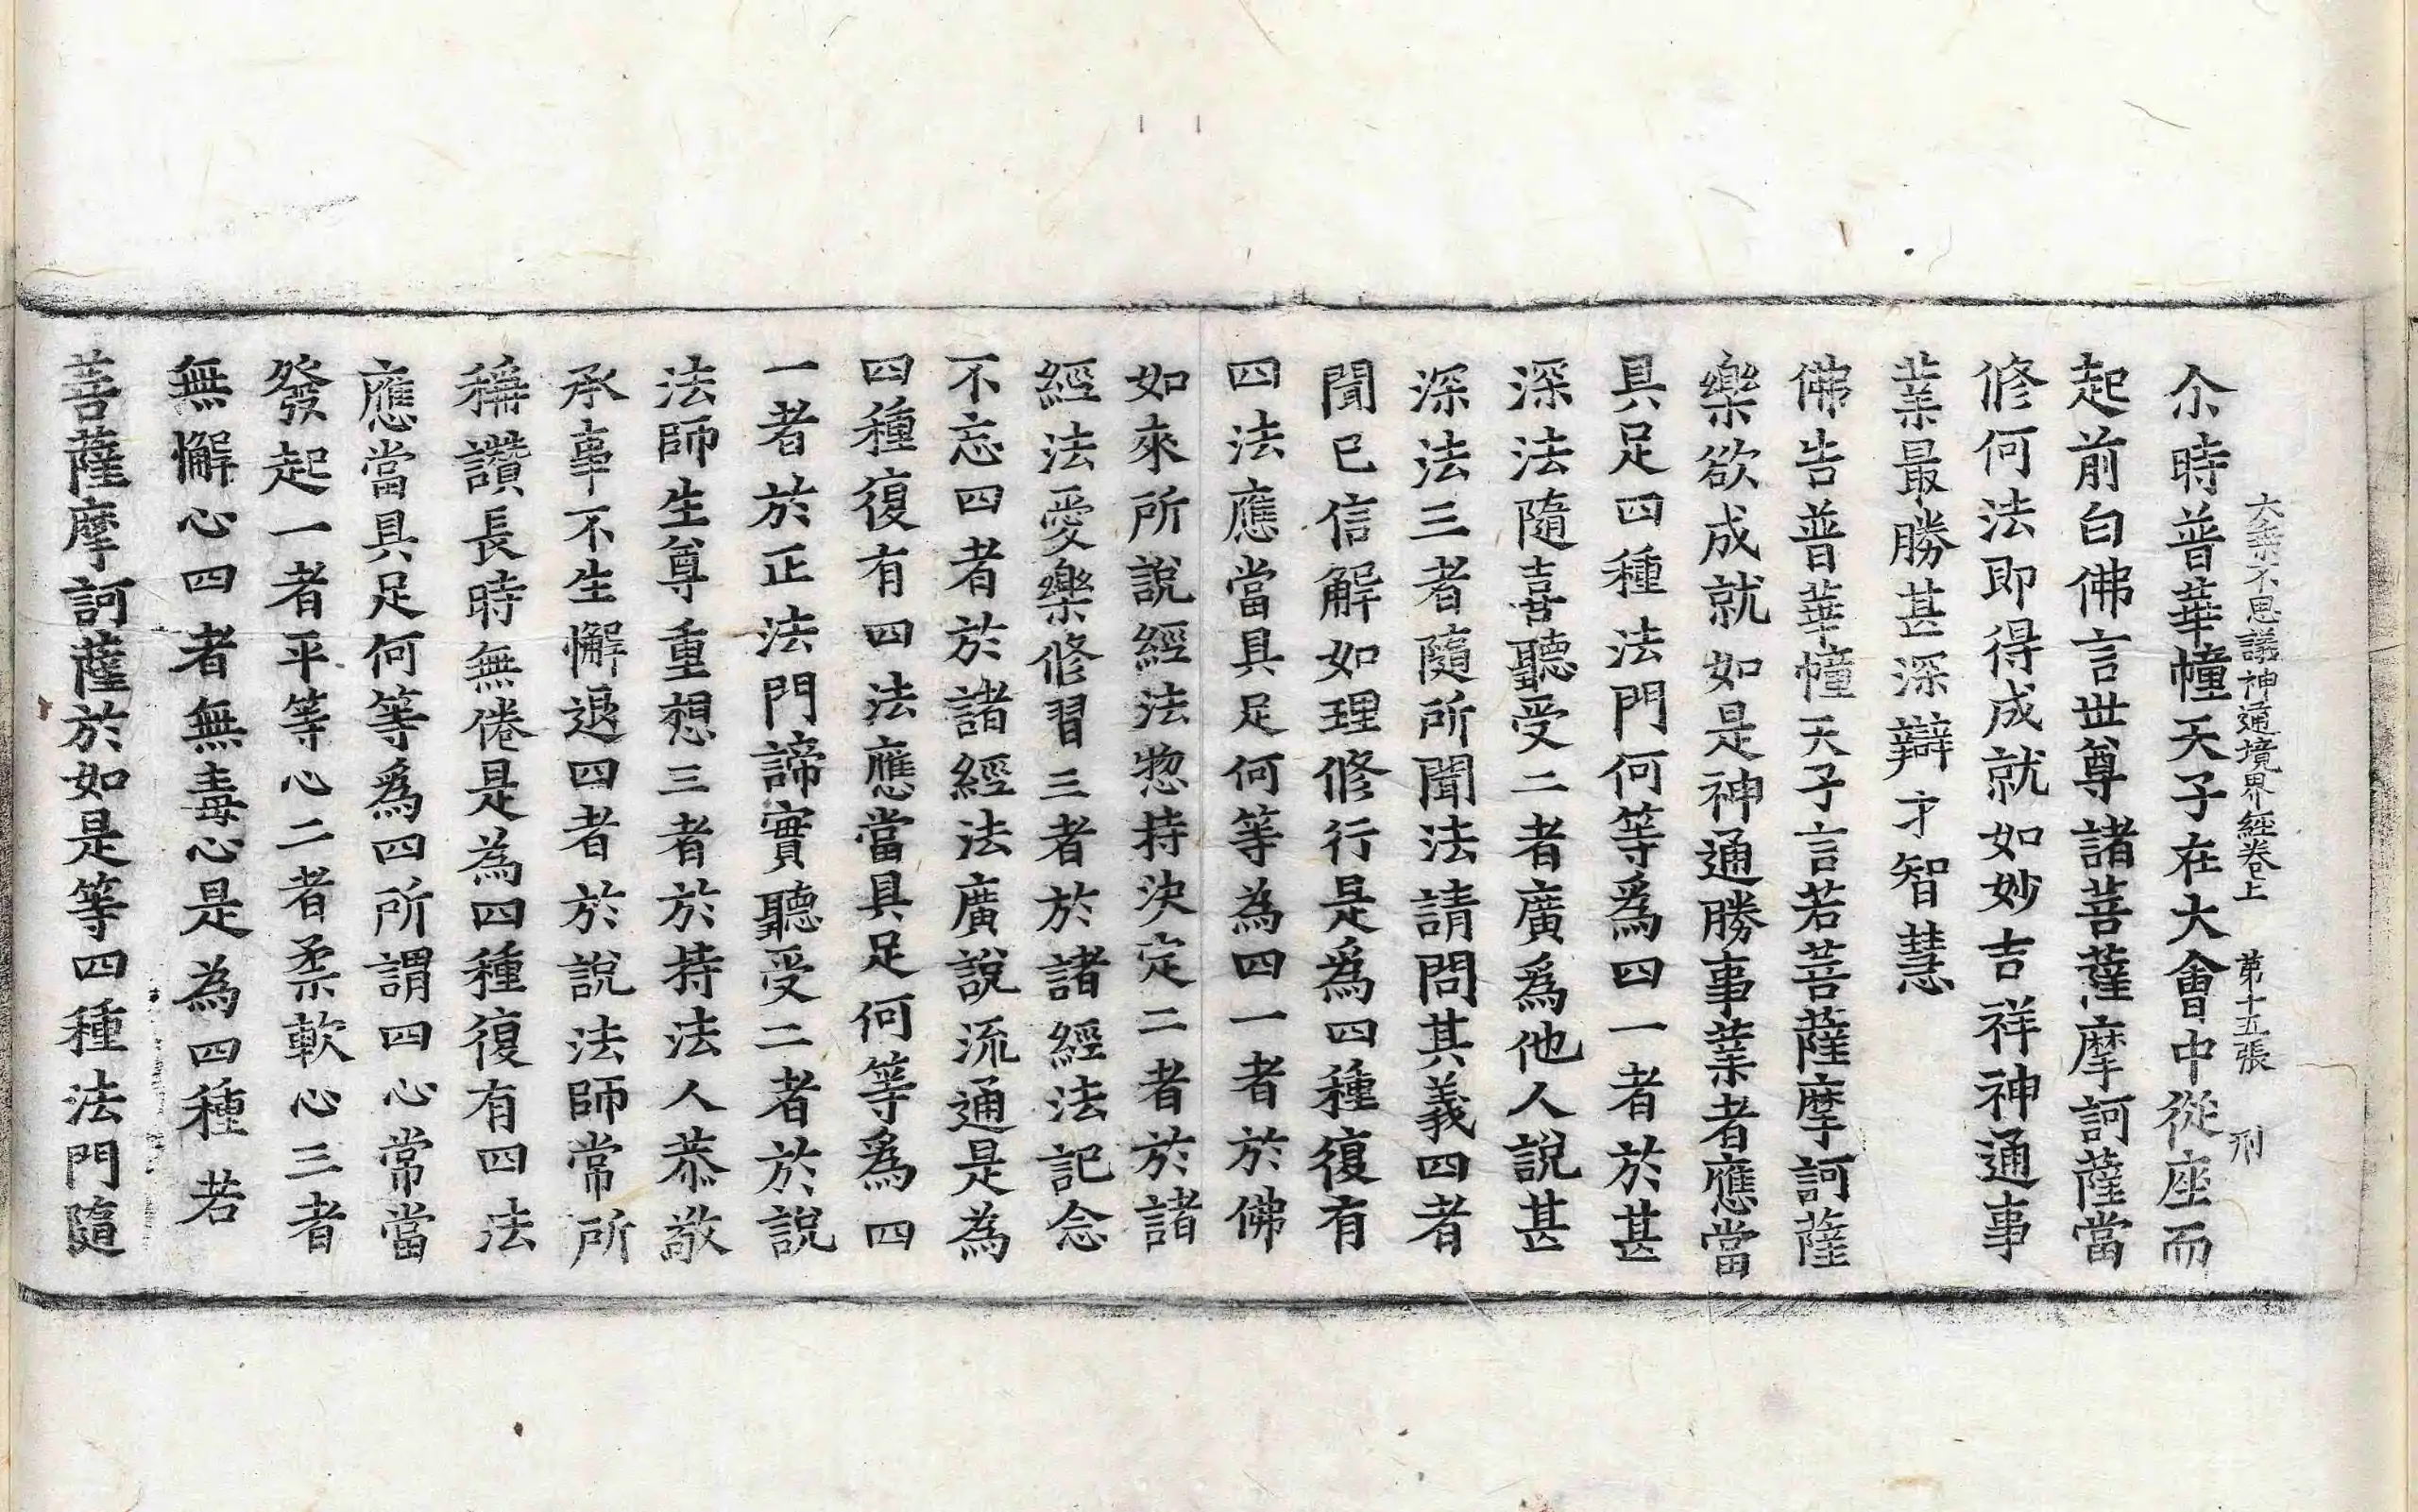 大乘不思議神通境界經卷上 第十五張 刑
尒時普華幢天子在大會中從座而
起前白佛言世尊諸菩薩摩訶薩當
修何法即得成就如妙吉祥神通事
業最勝甚深辯才智慧
佛告普華幢天子言若菩薩摩訶薩
樂欲成就如是神通勝事業者應當
具足四種法門何等爲四一者於甚
深法隨喜聽受二者廣爲他人說甚
深法三者隨所聞法請問其義四者
聞已信解如理修行是爲四種復有
四法應當具足何等為四一者於佛
如來所說經法惣持決定二者於諸
經法愛樂修習三者於諸經法記念
不忘四者於諸經法廣說流通是為
四種復有四法應當具足何等爲四
一者於正法門諦實聽受二者於說
法師生尊重想三者於持法人恭敬
承事不生懈退四者於說法師常所
稱讚長時無倦是為四種復有四法
應當具足何等爲四所謂四心常當
發起一者平等心二者柔軟心三者
無懈心四者無毒心是為四種若
菩薩摩訶薩於如是等四種法門隨